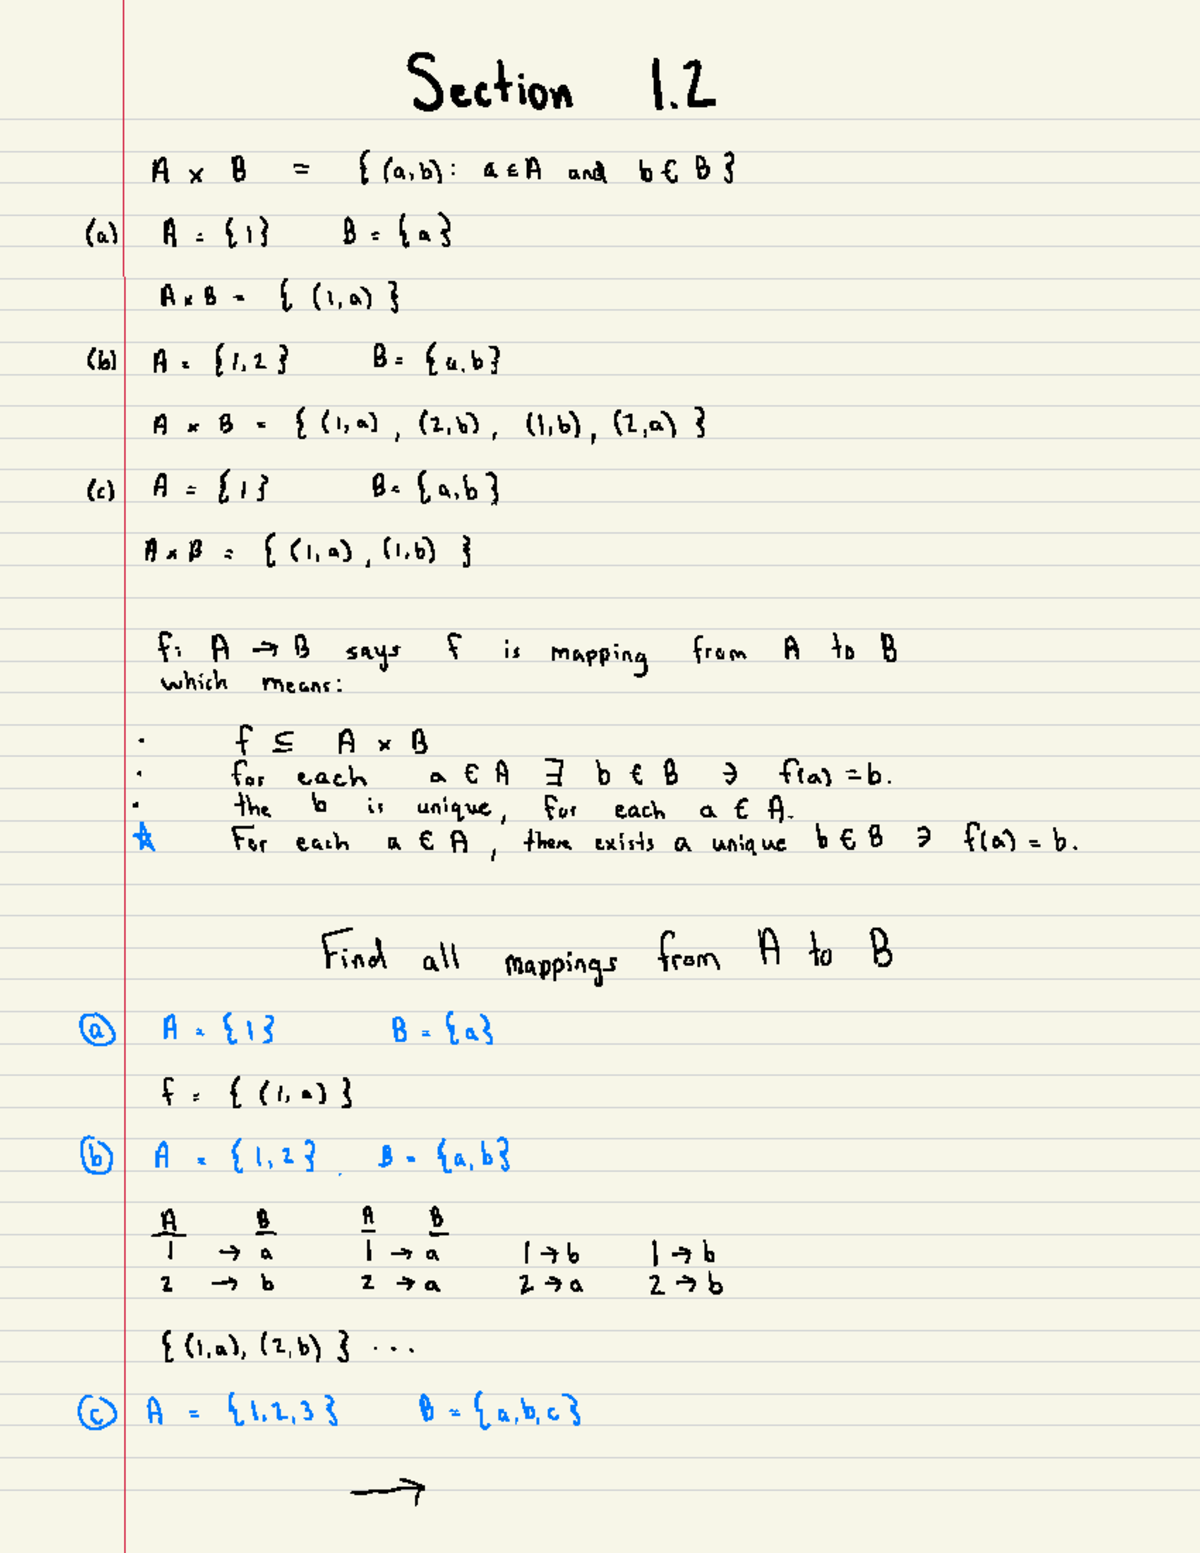 Section 1.2
A × B = { (a,b): a ∈ A and b ∈ B }
(a) A = {1} B = {a}
A × B = { (1,a) }
(b) A = {1,2} B = {a,b}
A × B = { (1,a), (2,b), (1,b), (2,a) }
(c) A = {1} B = {a,b}
A × B = { (1,a), (1,b) }
f: A → B says f is mapping from A to B
which means:
· f ⊆ A × B
· for each a ∈ A ∃ b ∈ B ∋ f(a) = b.
· the b is unique, for each a ∈ A.
☆ For each a ∈ A, there exists a unique b ∈ B ∋ f(a) = b.
Find all mappings from A to B
(a) A = {1} B = {a}
f = { (1,a) }
(b) A = {1,2} B = {a,b}
A B A B
1 → a 1 → a 1 → b 1 → b
2 → b 2 → a 2 → a 2 → b
{ (1,a), (2,b) } ...
(c) A = {1,2,3} B = {a,b,c}
→